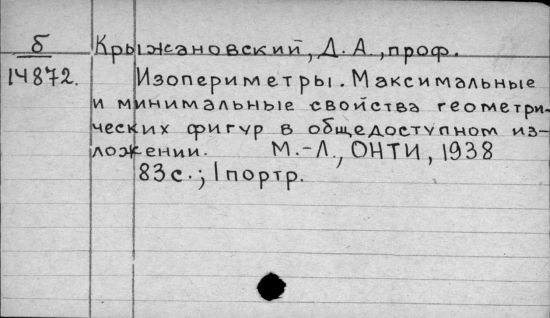 б Крыжановский, Д. А., проф.
14872. Изопериметры. Максимальные
и минимальные свойства геометри-
ческих фигур в общедоступном из-
ложении. М.-Л., ОНТИ, 1938
83 с.; 1 портр.